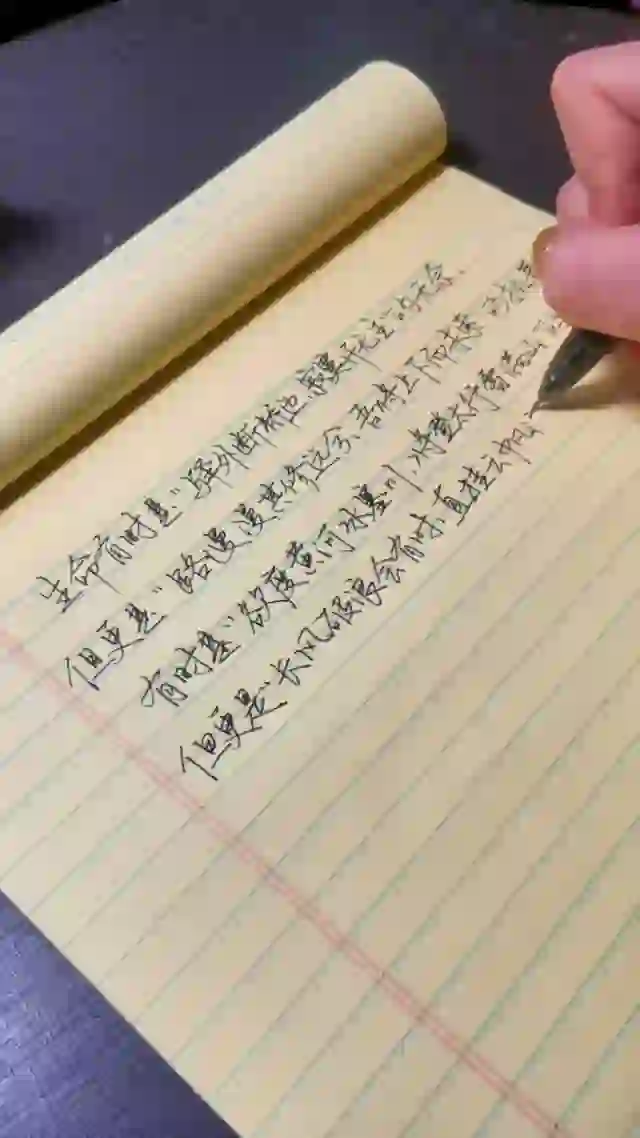 生命有时是“驿外断桥边,寂寞开无主”的无奈、
但更是“路漫漫其修远兮,吾将上下而求索”的
有时是“欲度黄河冰塞川,将登太行雪满山”
但更是“长风破浪会有时,直挂云帆